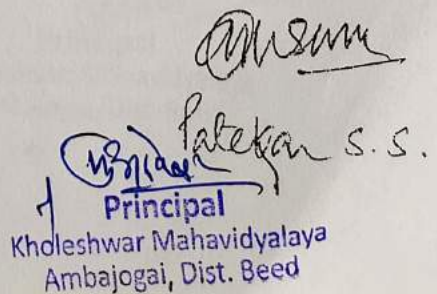 Patekar S. S.
Principal
Kholeshwar Mahavidyalaya
Ambajogai, Dist. Beed